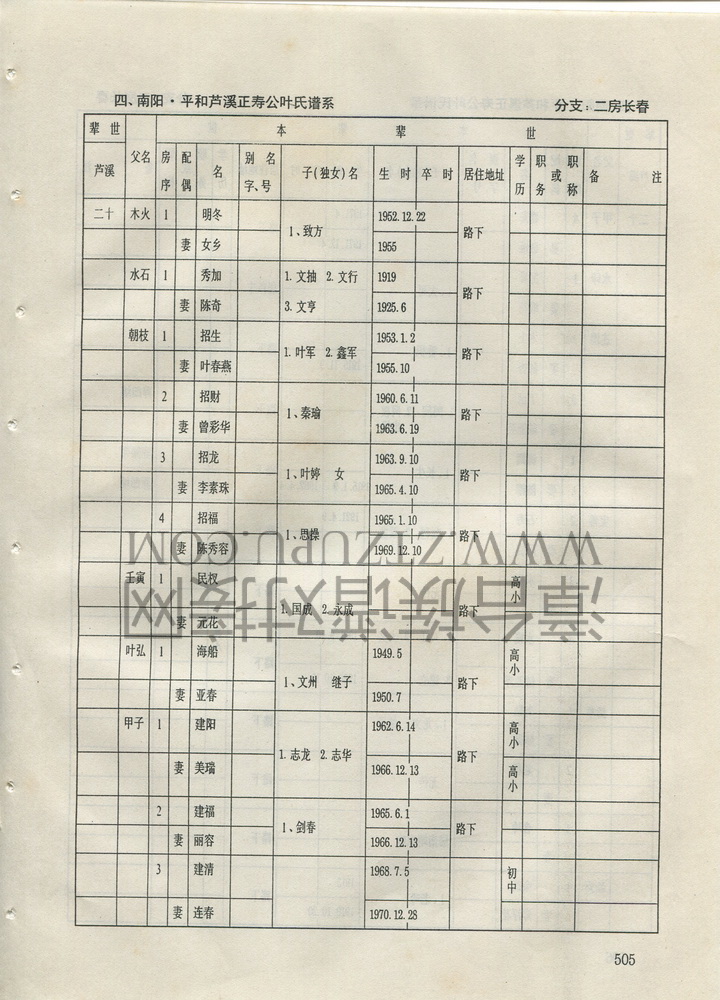 四、南阳·平和芦溪正寿公叶氏谱系 分支：二房长春
辈世 本 辈 世
芦溪 父名 房序 配偶 名 别名字、号 子(独女)名 生时 卒时 居住地址 学历 职务或职称 备注
二十 木火 1 明冬 1、致方 1952.12.22 路下
妻 女乡 1955
水石 1 秀加 1.文抽 2.文行 1919 路下
妻 陈奇 3.文亨 1925.6
朝枝 1 招生 1.叶军 2.鑫军 1953.1.2 路下
妻 叶春燕 1955.10
2 招财 1、秦瑜 1960.6.11 路下
妻 曾彩华 1963.6.19
3 招龙 1、叶婷 女 1963.9.10 路下
妻 李素珠 1965.4.10
4 招福 1、思操 1965.1.10 路下
妻 陈秀容 1969.12.10
壬寅 1 民权 1.国成 2.永成 路下 高小
妻 元花
叶弘 1 海船 1、文州 继子 1949.5 路下 高小
妻 亚春 1950.7
甲子 1 建阳 1.志龙 2.志华 1962.6.14 路下 高小
妻 美瑞 1966.12.13 高小
2 建福 1、剑春 1965.6.1 路下
妻 丽容 1966.12.13
3 建清 1968.7.5 初中
妻 连春 1970.12.28
505
漳台族谱对接网
WWW.ZTZUPU.COM